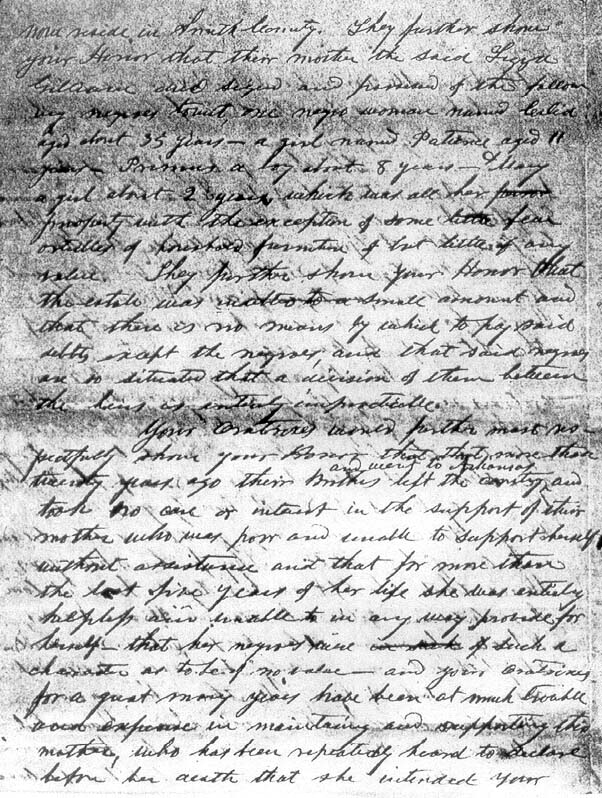 now reside in Smith County. They further show
your Honor that their mother the said
died seized and possessed of the follow
ing negroes towit one negro woman named
aged about 35 years – a girl named Patience aged 11
years – Primus a boy about 8 years – Mary
a girl about 2 years, which was all her
property with the exception of some little few
articles of household furniture of but little if any
value. They further show your Honor that
the estate was to a small amount and
that there is no means by which to pay said
debts except the negroes, and that said negroes
are so situated that a division of them between
the heirs is entirely impracticable.
Your Oratrixes would further most res-
pectfully show your Honor that more than
and went to Arkansas
twenty years ago their brothers left the country and
took no care or interest in the support of their
mother who was poor and unable to support herself
without assistance and that for more than
the last five years of her life she was entirely
helpless and unable to in any way provide for
herself – that her negroes were of such a
character as to be of no value – and your Oratrixes
for a great many years have been at much trouble
and expense in maintaining and supporting their
mother, who has been repeatedly heard to declare
before her death that she intended your